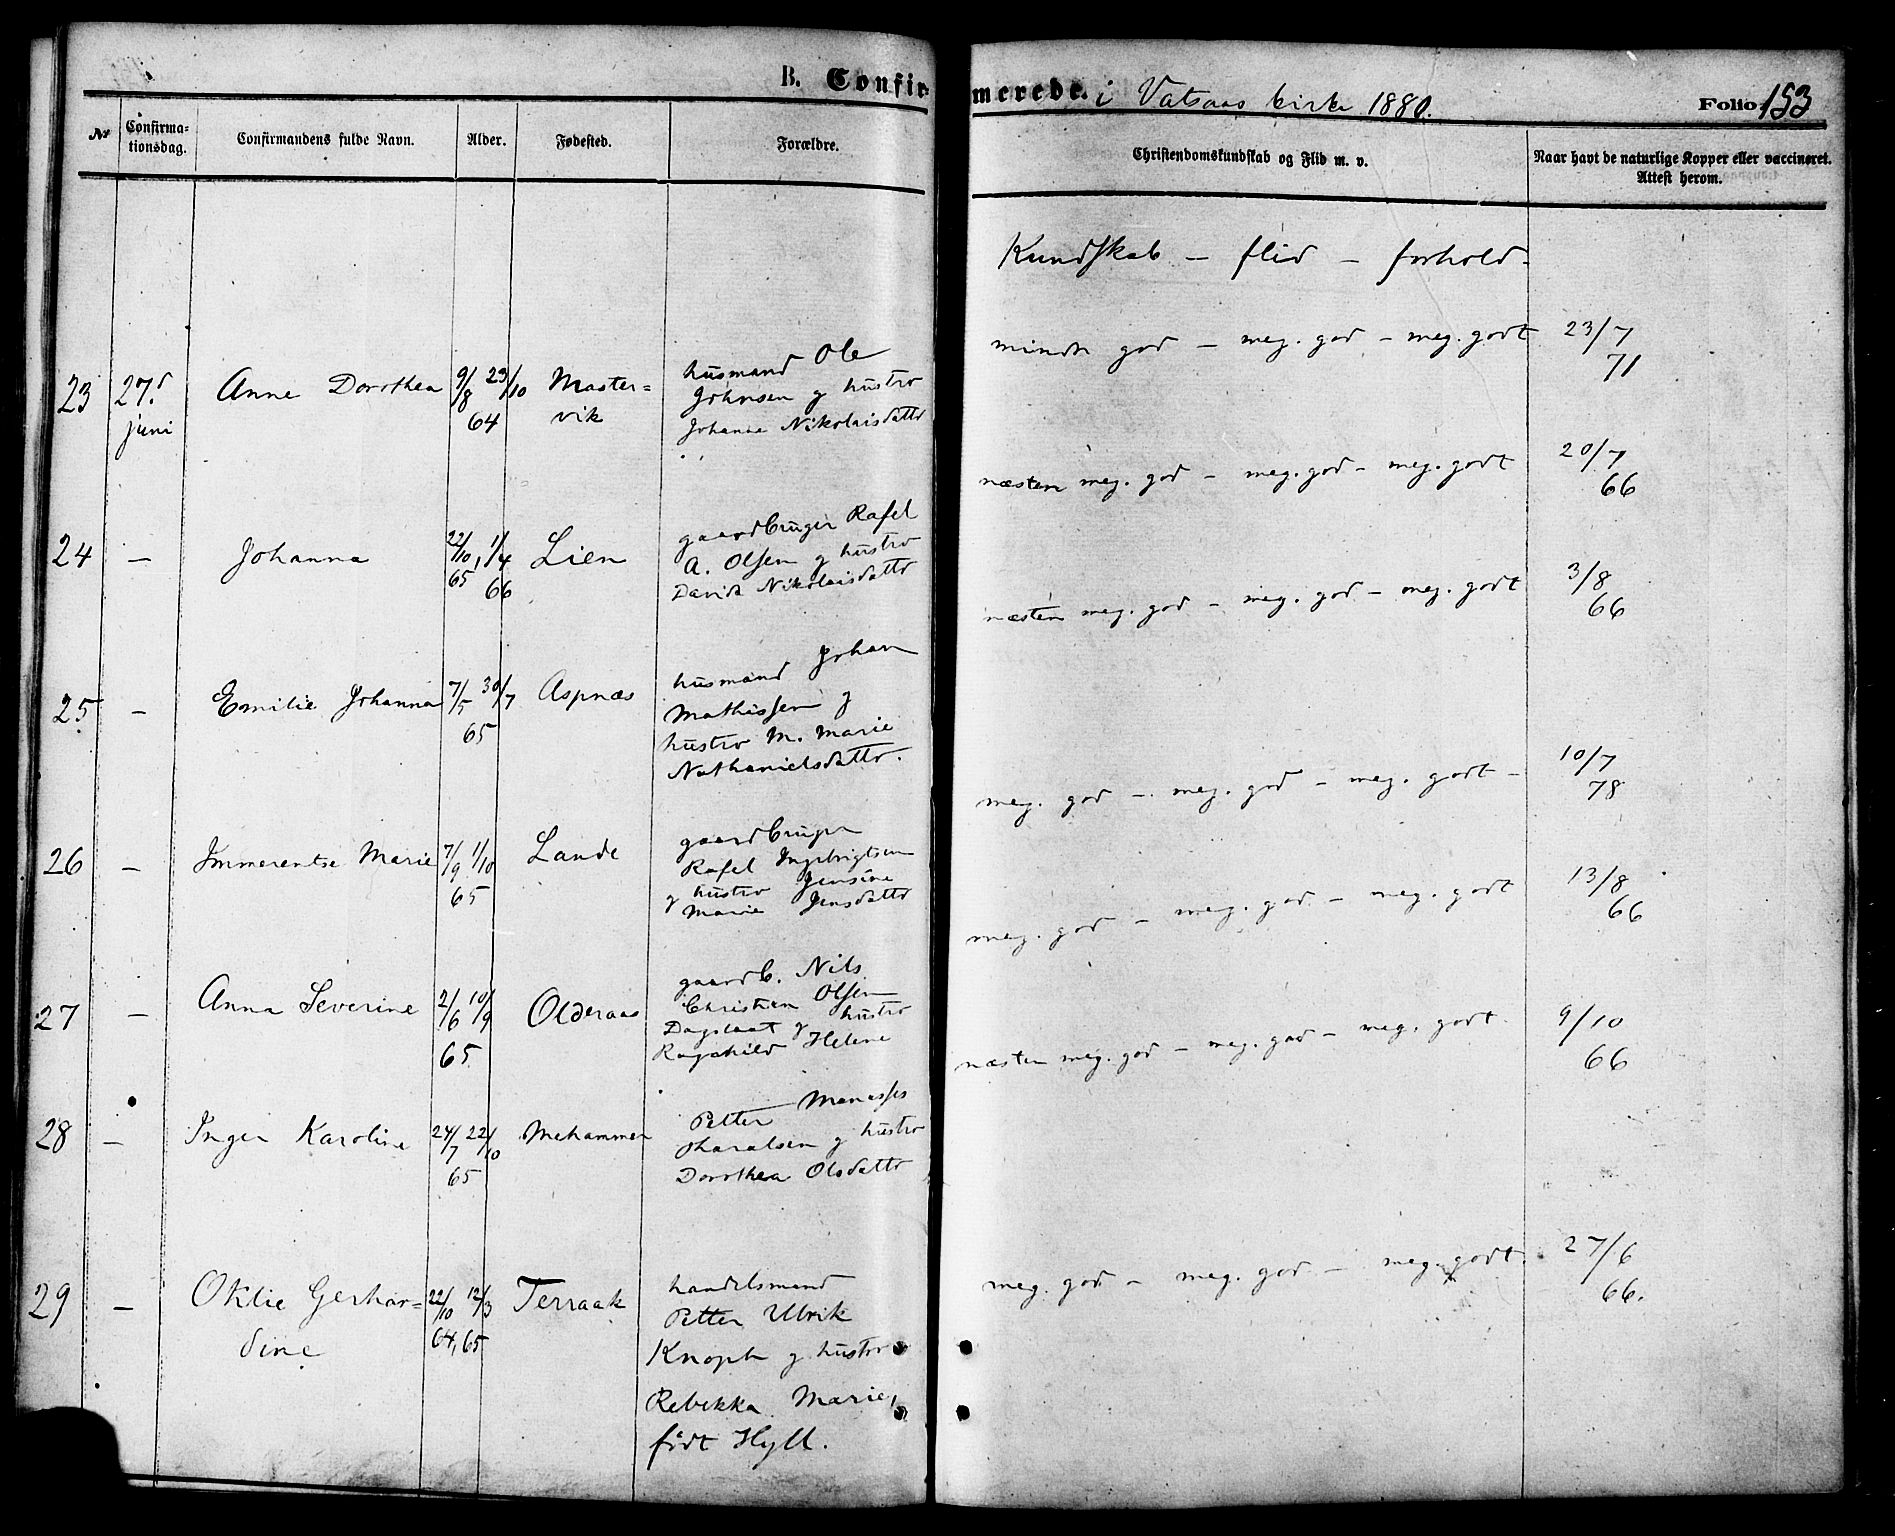 B. Confirmerede. i Vatsaas kirke 1880. Folio 153
No Confirmationsdag. Confirmandens fulde Navn. Alder. Fødested. Forældre. Christendomskundskab og Flid m. v. Naar havt de naturlige Kopper eller vaccineret. Attest herom.
Kundskab – flid – forhold –
23 27d juni Anne Dorothea 9/8 23/10 64 Mastervik
husmand Ole
Johnsen og hustro
Johanna Nikolaisdattr
mindre god – meg. god – meg. godt 23/7 71
24 – Johanna 22/10 65, 1/4 66 Lien
gaardbruger Rafel
A. Olsen og hustro
Nikolaisdattr
næsten meg. god – meg. god – meg. godt 20/7 66
25 – Emilie Johanna 7/5 30/7 65 Aspnæs
husmand Johan
Mathissen og
hustro M. Marie
Nathanielsdattr.
næsten meg. god – meg. god – meg. godt 3/8 66
26 – Immerentse Marie 7/9 1/10 65 Lande
gaardbruger
Rafel Ingebrigtsen
og hustro Jensine
Marie Jensdattr
meg. god – meg. god – meg. godt – 10/7 78
27 – Anna Severine 2/6 10/9 65 Olderaas
gaardb. Nils
Christian Olsen
og hustro
Ragnhild Helene
meg. god – meg. god – meg. godt 13/8 66
28 – Inger Karoline 24/7 22/10 65 Mehammer
Petter Manasses
Haralsen og hustro
Dorothea Olsdattr
næsten meg. god – meg. god – meg. godt 9/10 66
29 – Oktie Gerhardine 22/10 12/3 64, 65 Terraak
handelsmand
Petter Ulrik
Knoph og hustro
Rebekka Marie,
født Hyll.
meg. god – meg. god – meg. godt. 27/6 66.